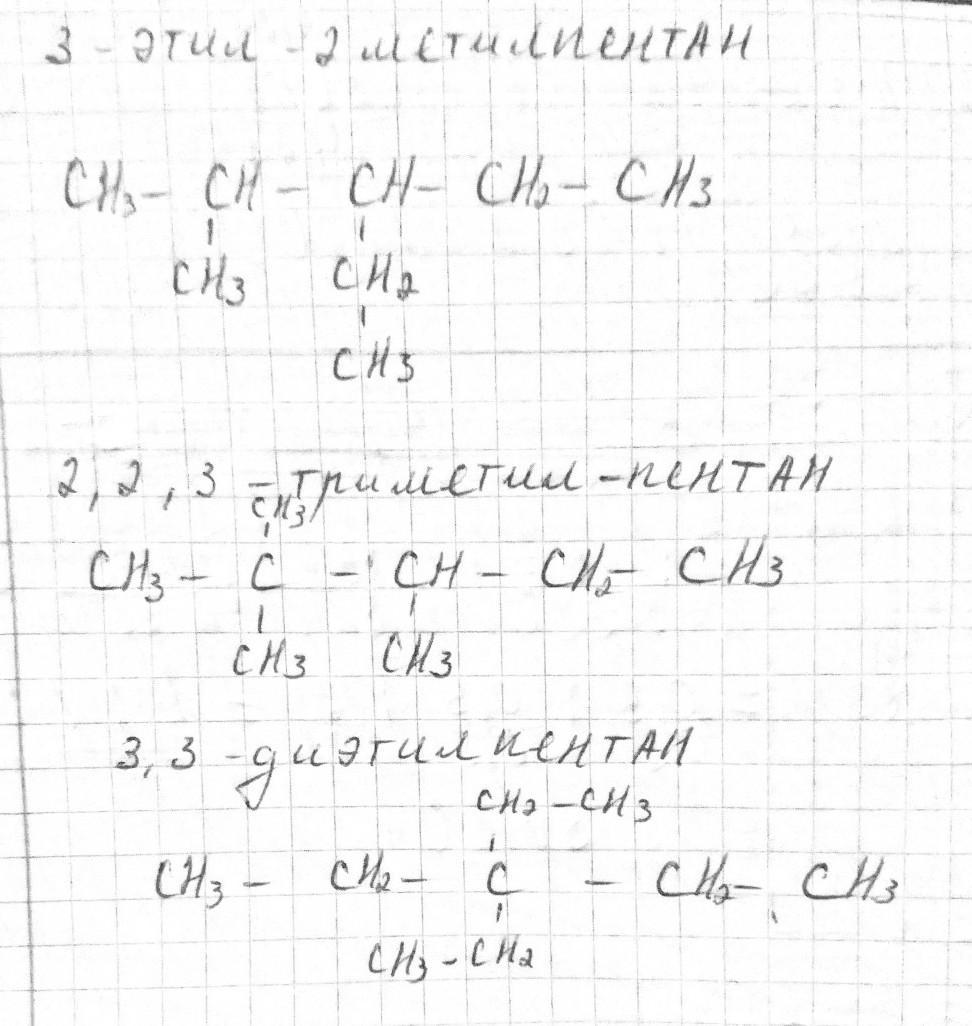 3 - этил - 2 метилпентан
CH3 - CH - CH - CH2 - CH3
CH3 CH2
CH3
2, 2, 3 - триметил - пентан
CH3
CH3 - C - CH - CH2 - CH3
CH3 CH3
3, 3 - диэтилпентан
CH2 - CH3
CH3 - CH2 - C - CH2 - CH3
CH3 - CH2